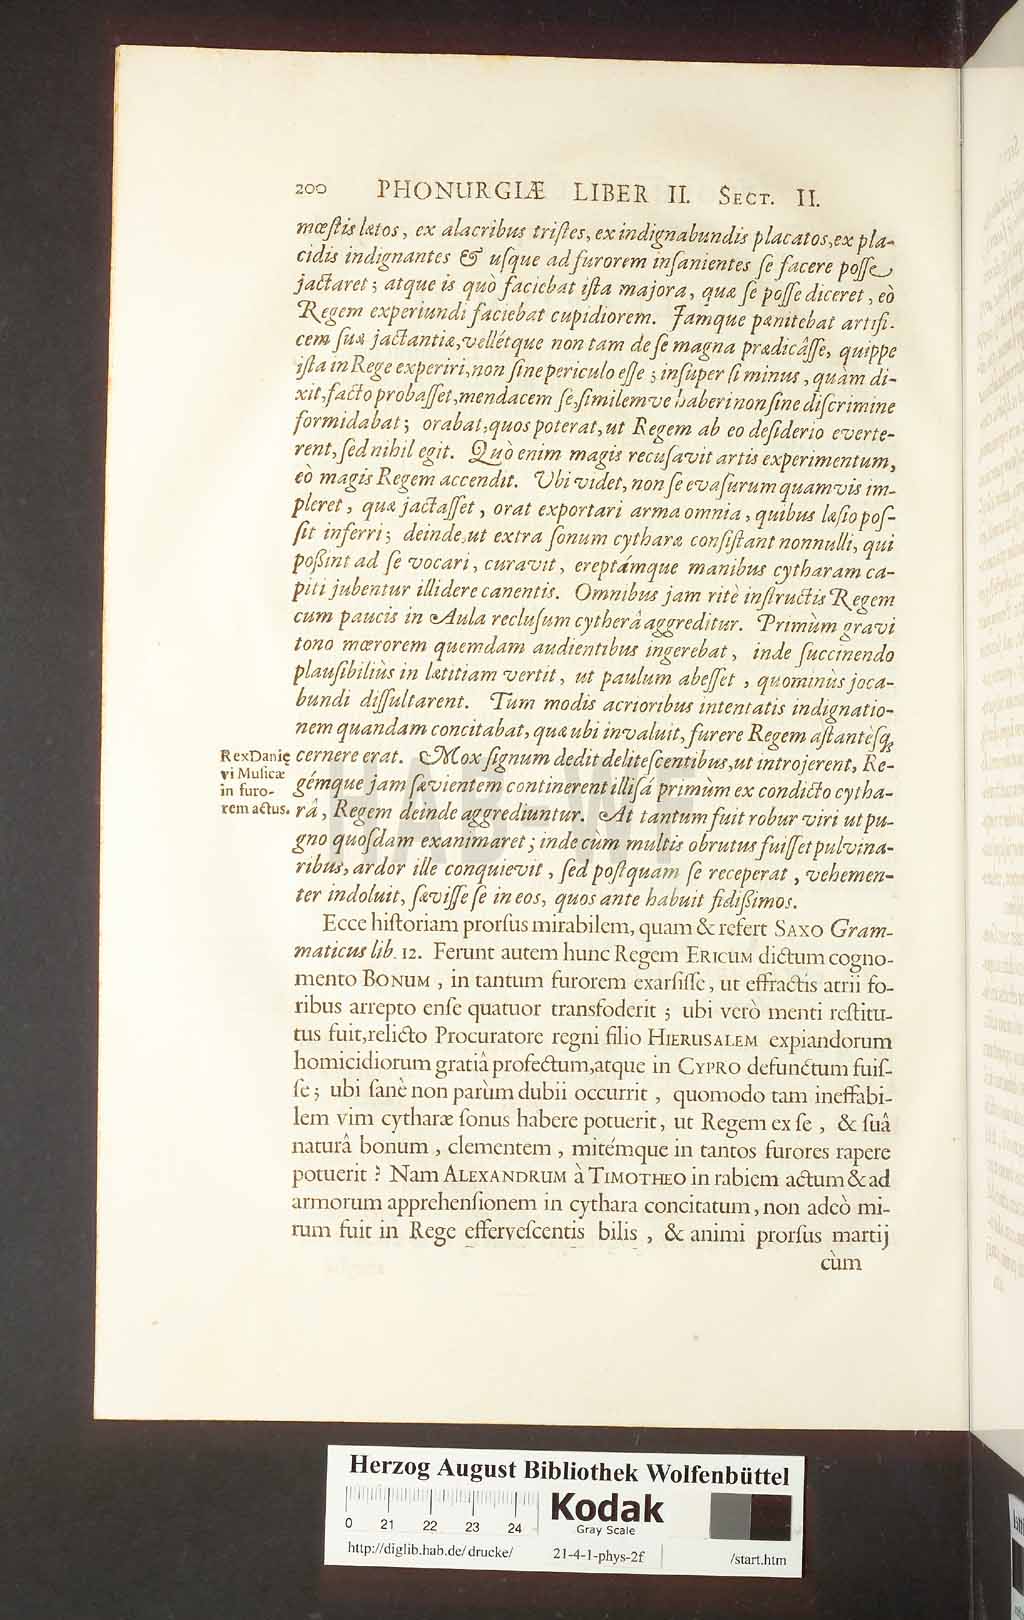 200 PHONURGIÆ LIBER II. SECT. II.
mœſtis lætos, ex alacribus triſtes, ex indignabundis placatos, ex pla-
cidis indignantes & uſque ad furorem inſanientes ſe facere poſſe
jactaret; atque is quò faciebat iſta majora, quæ ſe poſſe diceret, eò
Regem experiundi faciebat cupidiorem. Jamque pænitebat artifi-
cem ſuæ jactantiæ, vellétque non tam de ſe magna prædicâſſe, quippe
iſta in Rege experiri, non ſine periculo eſſe; inſuper ſi minus, quàm di-
xit, facto probaſſet, mendacem ſe, ſimilemve haberi non ſine diſcrimine
formidabat; orabat, quos poterat, ut Regem ab eo deſiderio everte-
rent, ſed nihil egit. Quò enim magis recuſavit artis experimentum,
eò magis Regem accendit. Ubi videt, non ſe evaſurum quamvis im-
pleret, quæ jactaſſet, orat exportari arma omnia, quibus læſio poſ-
ſit inferri; deinde, ut extra ſonum cytharæ conſiſtant nonnulli, qui
poßint ad ſe vocari, curavit, ereptámque manibus cytharam ca-
piti jubentur illidere canentis. Omnibus jam ritè inſtructis Regem
cum paucis in Aula recluſum cytherâ aggreditur. Primùm gravi
tono mœrorem quemdam audientibus ingerebat, inde ſuccinendo
plauſibiliùs in lætitiam vertit, ut paulum abeſſet, quominùs joca-
bundi diſſultarent. Tum modis acrioribus intentatis indignatio-
nem quandam concitabat, quæ ubi invaluit, furere Regem aſtantèſq;
cernere erat. Mox ſignum dedit deliteſcentibus, ut introjerent, Re-
gémque jam ſævientem continerent illiſá primùm ex condicto cytha-
râ, Regem deinde aggrediuntur. At tantum fuit robur viri ut pu-
gno quoſdam exanimaret; inde cùm multis obrutus fuiſſet pulvina-
ribus, ardor ille conquievit, ſed poſtquam ſe receperat, vehemen-
ter indoluit, ſæviſſe ſe in eos, quos ante habuit fidißimos.
RexDanię
vi Muſicæ
in furo-
rem actus.
Ecce hiſtoriam prorſus mirabilem, quam & refert SAXO Gram-
maticus lib. 12. Ferunt autem hunc Regem ERICUM dictum cogno-
mento BONUM, in tantum furorem exarſiſſe, ut effractis atrii fo-
ribus arrepto enſe quatuor transfoderit; ubi verò menti reſtitu-
tus fuit, relicto Procuratore regni filio HIERUSALEM expiandorum
homicidiorum gratiâ profectum, atque in CYPRO defunctum fuiſ-
ſe; ubi ſanè non parùm dubii occurrit, quomodo tam ineffabi-
lem vim cytharæ ſonus habere potuerit, ut Regem ex ſe, & ſuâ
naturâ bonum, clementem, mitémque in tantos furores rapere
potuerit? Nam ALEXANDRUM à TIMOTHEO in rabiem actum & ad
armorum apprehenſionem in cythara concitatum, non adeò mi-
rum fuit in Rege efferveſcentis bilis, & animi prorſus martij
cùm
HAB-WF
Herzog August Bibliothek Wolfenbüttel
0 21 22 23 24
Kodak
Gray Scale
http://diglib.hab.de/drucke/ 21-4-1-phys-2f /start.htm